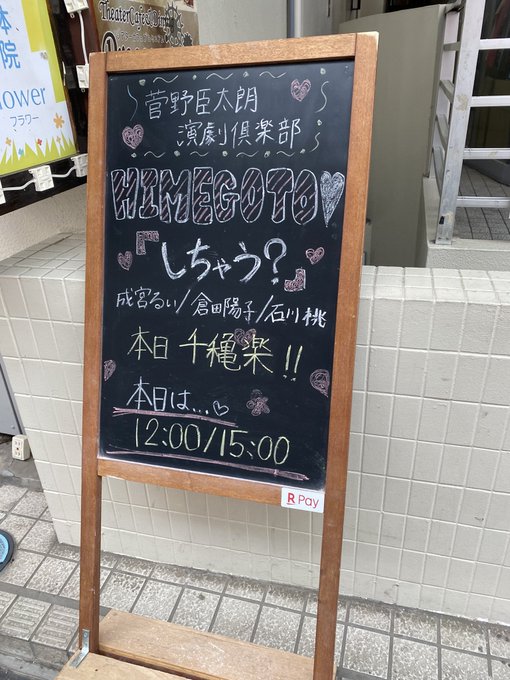 Theater Cafe & Di
本
院
ower
フラワー
菅野臣太朗
演劇倶楽部
HIMEGOTO♡
『しちゃう?』
成宮るい/倉田陽子/石川桃
本日 千穐楽!!
本日は...♡
12:00/15:00
R Pay